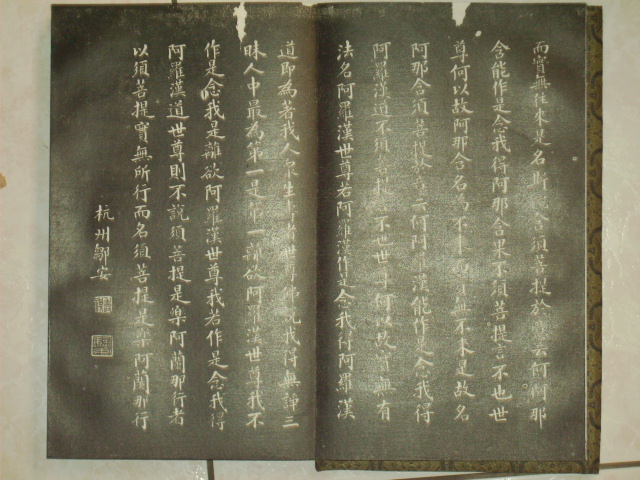 而實無往來是名斯陀含須菩提於意云何阿那
含能作是念我得阿那含果不須菩提言不也世
尊何以故阿那含名為不來而實無不來是故名
阿那含須菩提於意云何阿羅漢能作是念我得
阿羅漢道不須菩提言不也世尊何以故實無有
法名阿羅漢世尊若阿羅漢作是念我得阿羅漢
道即為著我人眾生壽者世尊佛說我得無諍三
昧人中最為第一是第一離欲阿羅漢世尊我不
作是念我是離欲阿羅漢世尊我若作是念我得
阿羅漢道世尊則不說須菩提是樂阿蘭那行者
以須菩提實無所行而名須菩提是樂阿蘭那行
杭州鄒安